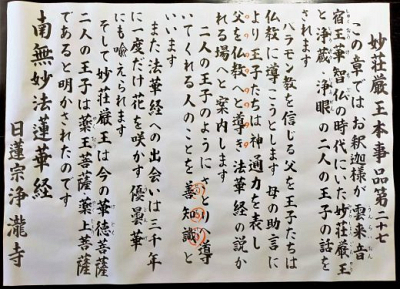 妙荘厳王本事品第二十七
この章ではお釈迦様が雲来音
宿王華智仏の時代にいた妙荘厳王
と浄蔵・浄眼の二人の王子の話を
されます
バラモン教を信じる父を王子たちは
仏教に導こうとします 母の助言に
より王子たちは神通力を表し
父を仏教へと導き法華経の説か
れる場へと案内します
二人の王子のようにさとりへ導
いてくれる人のことを善知識と
いいます
また法華経への出会いは三千年
に一度だけ花を咲かす優曇華
にも喩えられます
そして妙荘厳王は今の華徳菩薩
二人の王子は薬王菩薩・薬上菩薩
であると明かされたのです
南無妙法蓮華経
日蓮宗浄瀧寺